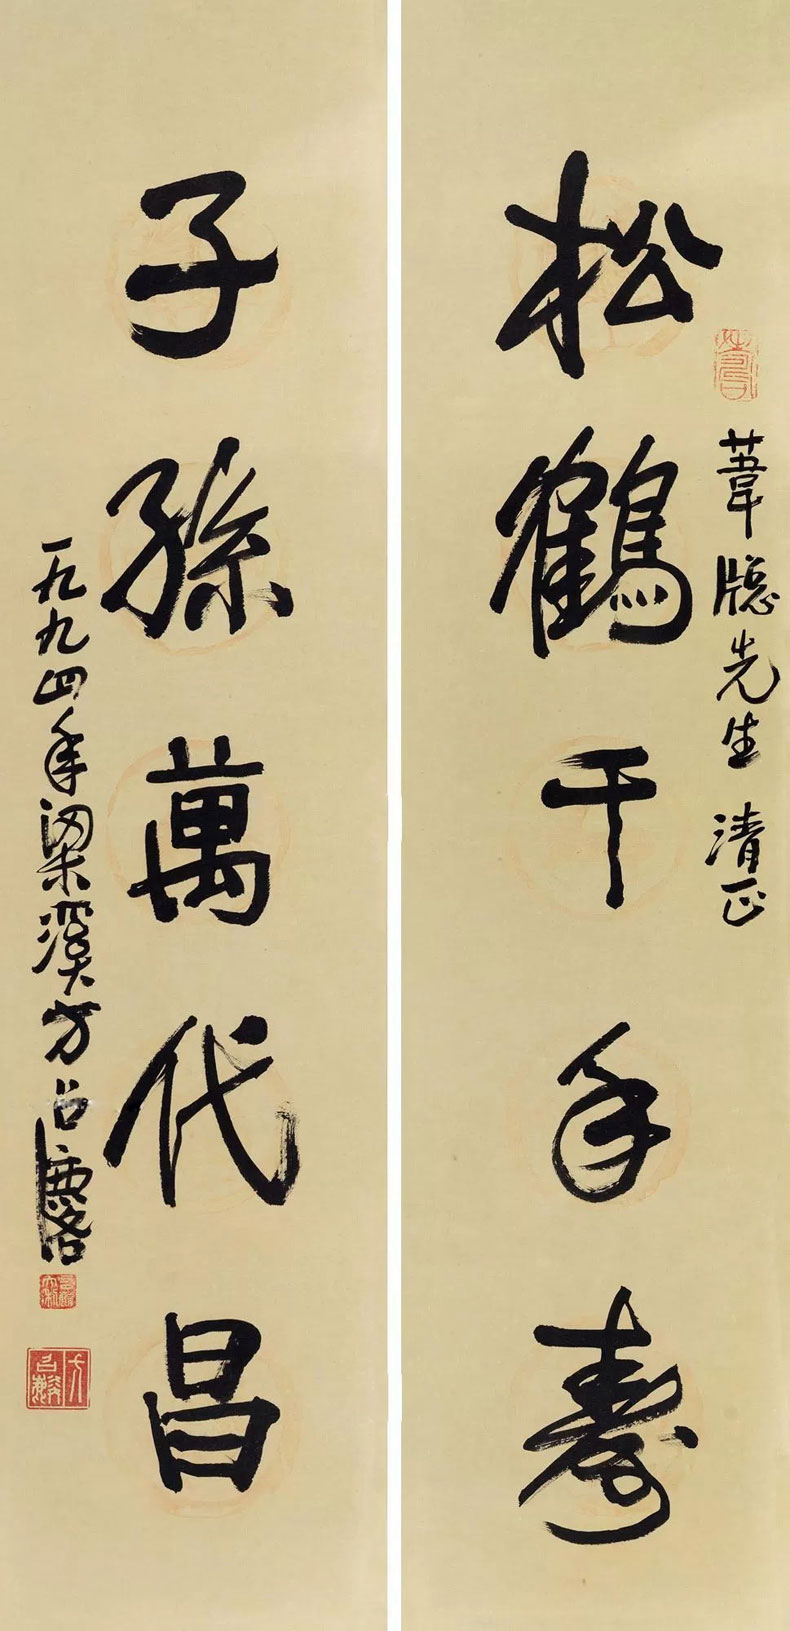 松鶴千年壽
葦牕先生 清正
子孫萬代昌
一九九四年梁溪方召麐